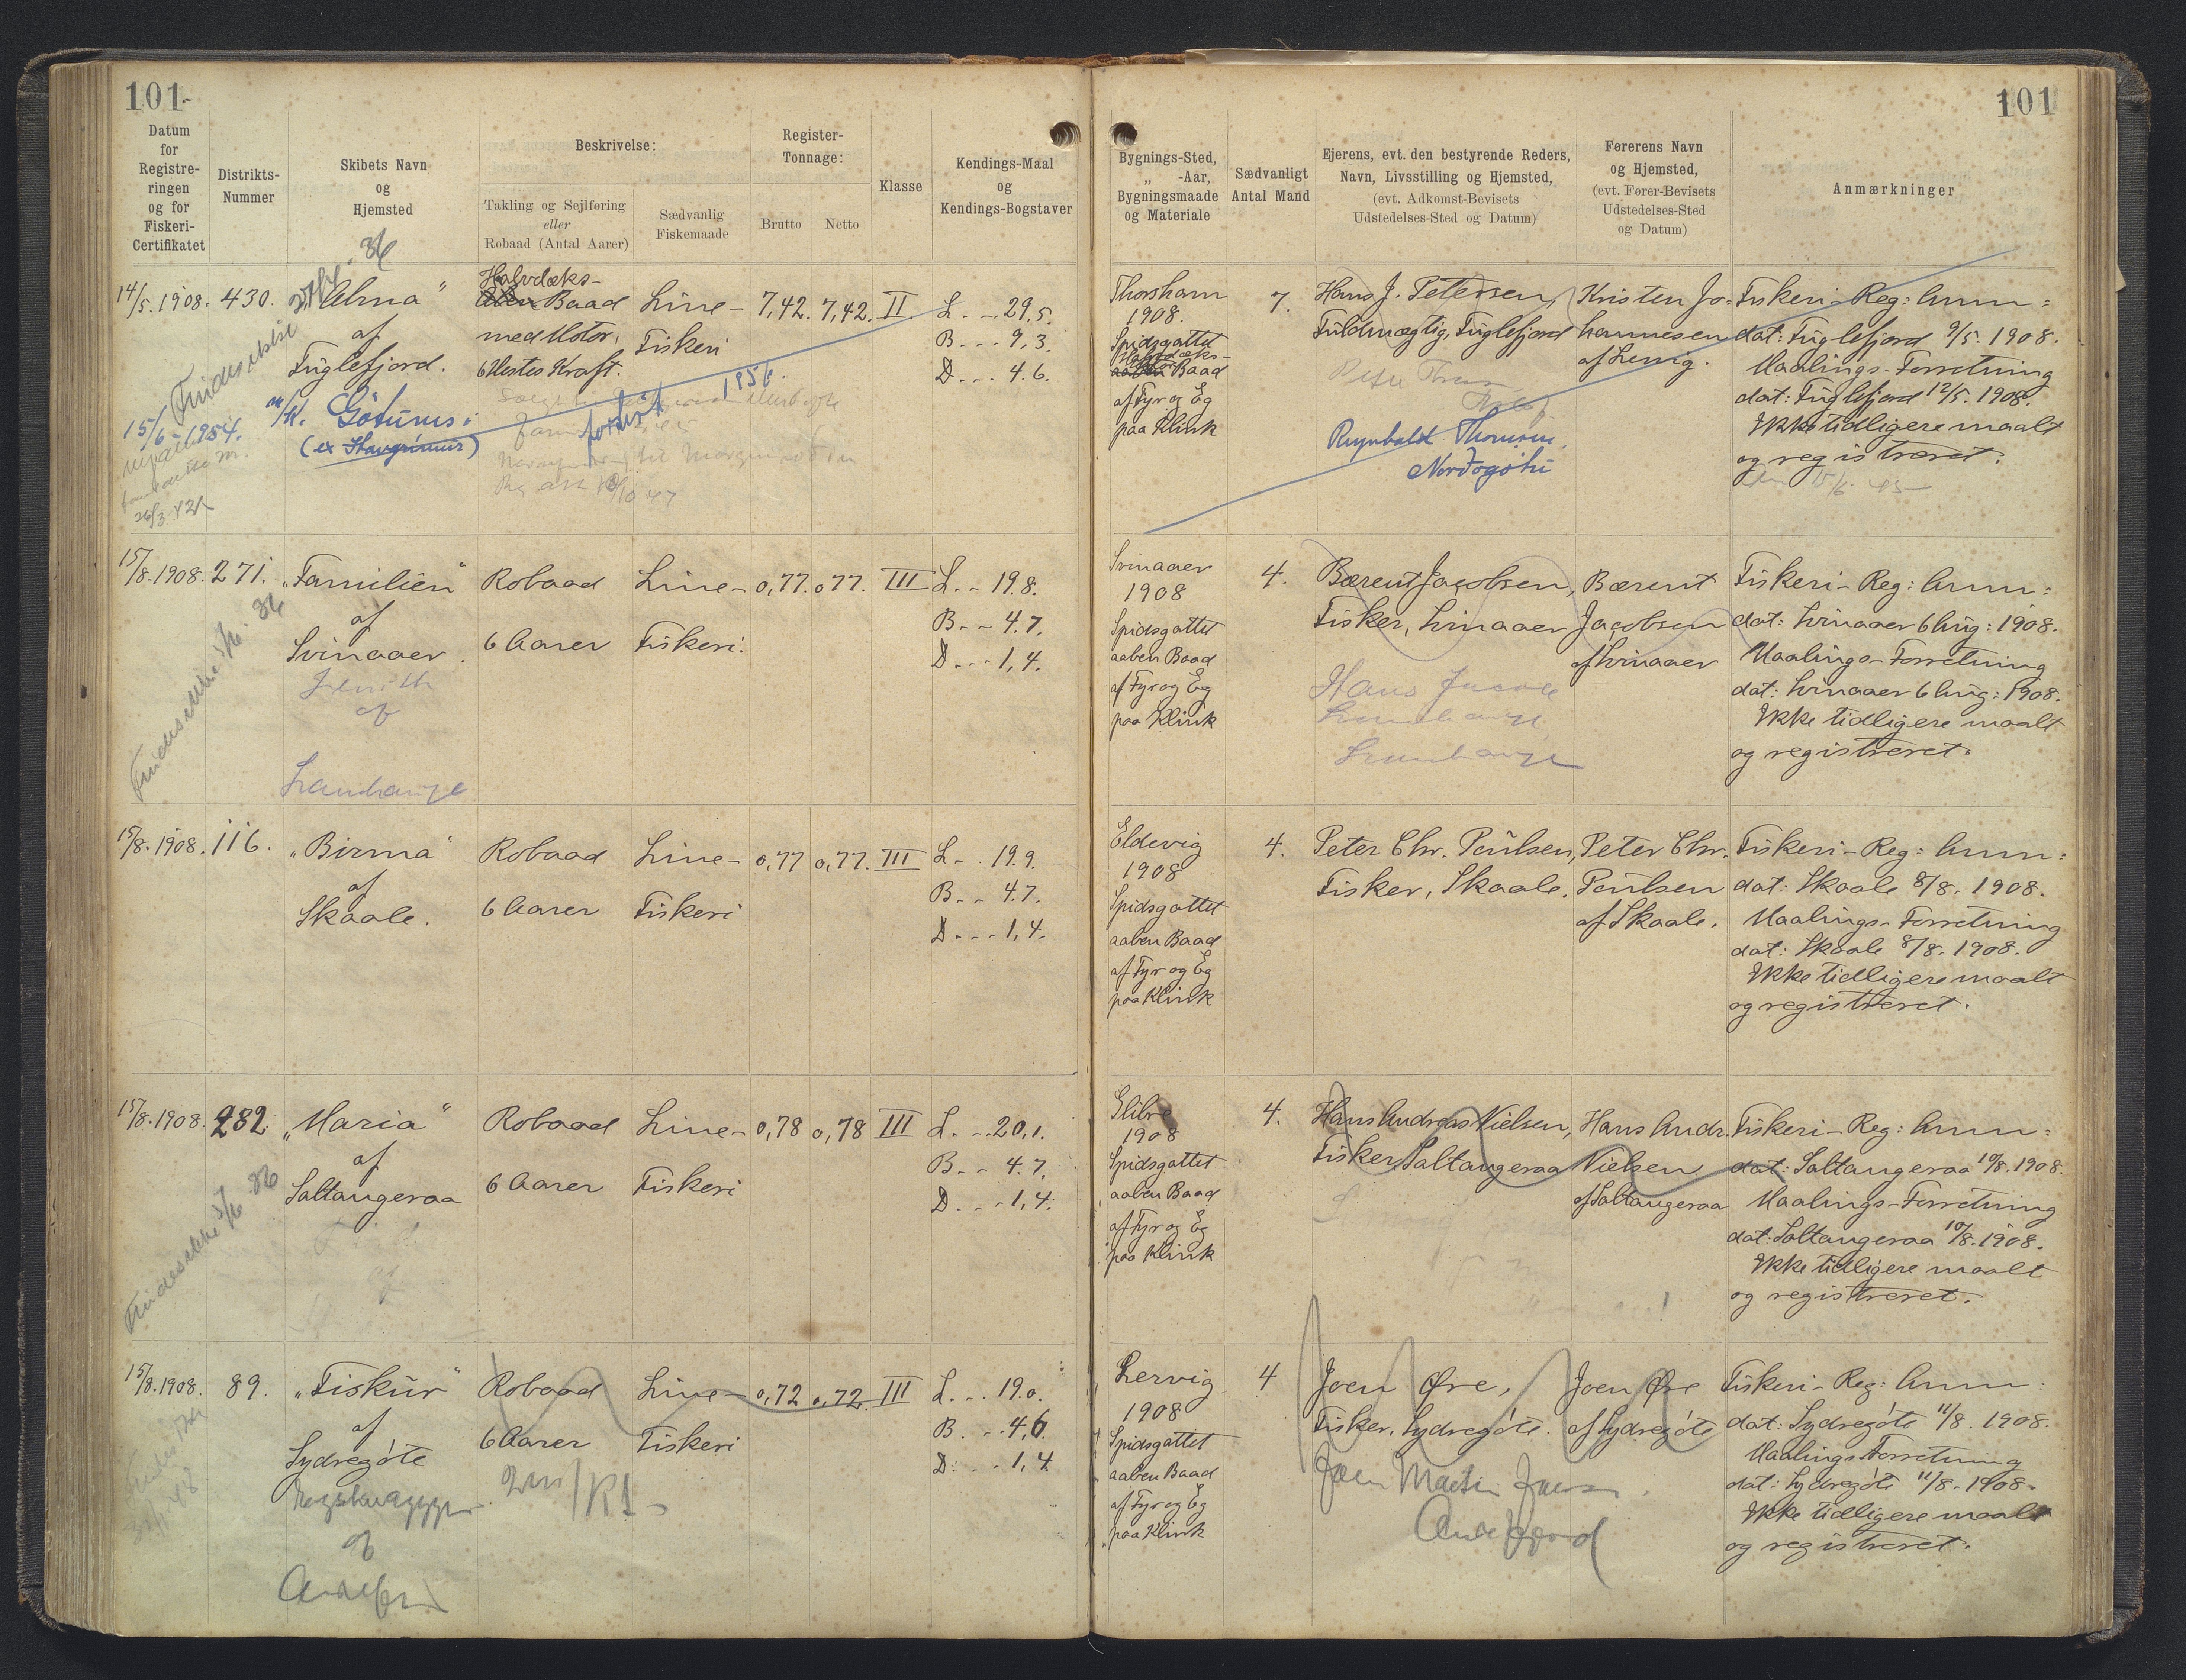 101
101
Datum
for
Registre-
ringen
og for
Fiskeri-
Certifikatet
Distrikts-
Nummer
Skibets Navn
og
Hjemsted
Beskrivelse:
Takling og Sejlføring
eller
Robaad (Antal Aarer)
Sædvanlig
Fiskemaade
Register-
Tonnage:
Brutto
Netto
Klasse
Kendings-Maal
og
Kendings-Bogstaver
Bygnings-Sted,
„ -Aar,
Bygningsmaade
og Materiale
Sædvanligt
Antal Mand
Ejerens, evt. den bestyrende Reders,
Navn, Livsstilling og Hjemsted,
(evt. Adkomst-Bevisets
Udstedelses-Sted og Datum)
Førerens Navn
og Hjemsted,
(evt. Fører-Bevisets
Udstedelses-Sted
og Datum)
Anmærkninger
14/5. 1908.
430.
„Alma“
af
Fuglefjord.
M/K. Götunes
(ex Havgrímur)
Findes ikke
15/6-1954.
36
26/3 42
Halvdæks-
Baad
med Motor,
6 Hestes Kraft.
forlist 1956.
Line-
Fiskeri
7,42.
7,42.
II.
L. - 29,5.
B. - - 9,3.
D. - - 4.6.
Thorshavn
1908.
Spidsgattet
Halvdæks-
aaben Baad
af Fyr og Eg
paa Klink
7.
Hans J. Petersen,
Fuldmægtig, Fuglefjord
Thomsen,
Nordragøtu
Kristen Jo-
hannesen
af Lervig.
Fiskeri-Reg: Anm:
dat: Fuglefjord 9/5. 1908.
Maalings-Forretning
dat: Fuglefjord 12/5. 1908.
Ikke tidligere maalt
og registreret.
15/8. 1908.
271.
„Familien“
af
Svinaaer.
af
Findes ikke 5/6. 36
Robaad
6 Aarer
Line-
Fiskeri.
0,77.
0,77.
III
L. - 19.8.
B. - - 4.7.
D. - - 1,4.
Svinaaer
1908
Spidsgattet
aaben Baad
af Fyr og Eg
paa Klink
4.
Bærent Jacobsen,
Fisker, Svinaaer
Hans Jacob
Bærent
Jacobsen
af Svinaaer
Fiskeri-Reg: Anm:
dat: Svinaaer 6 Aug: 1908.
Maalings-Forretning
dat: Svinaaer 6 Aug: 1908.
Ikke tidligere maalt
og registreret.
15/8. 1908.
116.
„Birma“
af
Skaale.
Robaad
6 Aarer
Line-
Fiskeri
0,77
0,77.
III
L. - . 19.9.
B. - - 4.7.
D. - - 1,4.
Eldevig
1908
Spidsgattet
aaben Baad
af Fyr og Eg
paa Klink
4.
Peter Chr. Poulsen,
Fisker, Skaale.
Peter Chr.
Poulsen
af Skaale.
Fiskeri-Reg: Anm:
dat: Skaale 8/8. 1908.
Maalings-Forretning
dat: Skaale 8/8. 1908.
Ikke tidligere maalt
og registreret.
15/8. 1908.
282.
„Maria“
af
Saltangeraa
Findes ikke 5/6. 36
Robaad
6 Aarer
Line-
Fiskeri
0,78
0,78
III
L. - . 20,1.
B. - - 4.7.
D. - - 1,4.
Glibre
1908
Spidsgattet
aaben Baad
af Fyr og Eg
paa Klink
4.
Hans Andreas Nielsen,
Fisker, Saltangeraa
Hans Andr.
Nielsen
af Saltangeraa
Fiskeri-Reg: Anm:
dat: Saltangeraa 10/8. 1908.
Maalings-Forretning
dat: Saltangeraa 10/8. 1908.
Ikke tidligere maalt
og registreret.
15/8. 1908.
89.
„Fiskur“
af
Sydregöte
af
Robaad
6 Aarer
Line-
Fiskeri
0,72
0,72.
III
L. - . 19.0.
B. - - 4,6.
D. - - 1,4
Lervig
1908
Spidsgattet
aaben Baad
af Fyr og Eg
paa Klink
4
Joen Øre,
Fisker, Sydregöte.
Joen Martin
Joen Øre
af Sydregöte
Fiskeri-Reg: Anm:
dat: Sydregöte 11/8. 1908.
Maalings-Forretning
dat: Sydregöte 11/8. 1908.
Ikke tidligere maalt
og registreret.